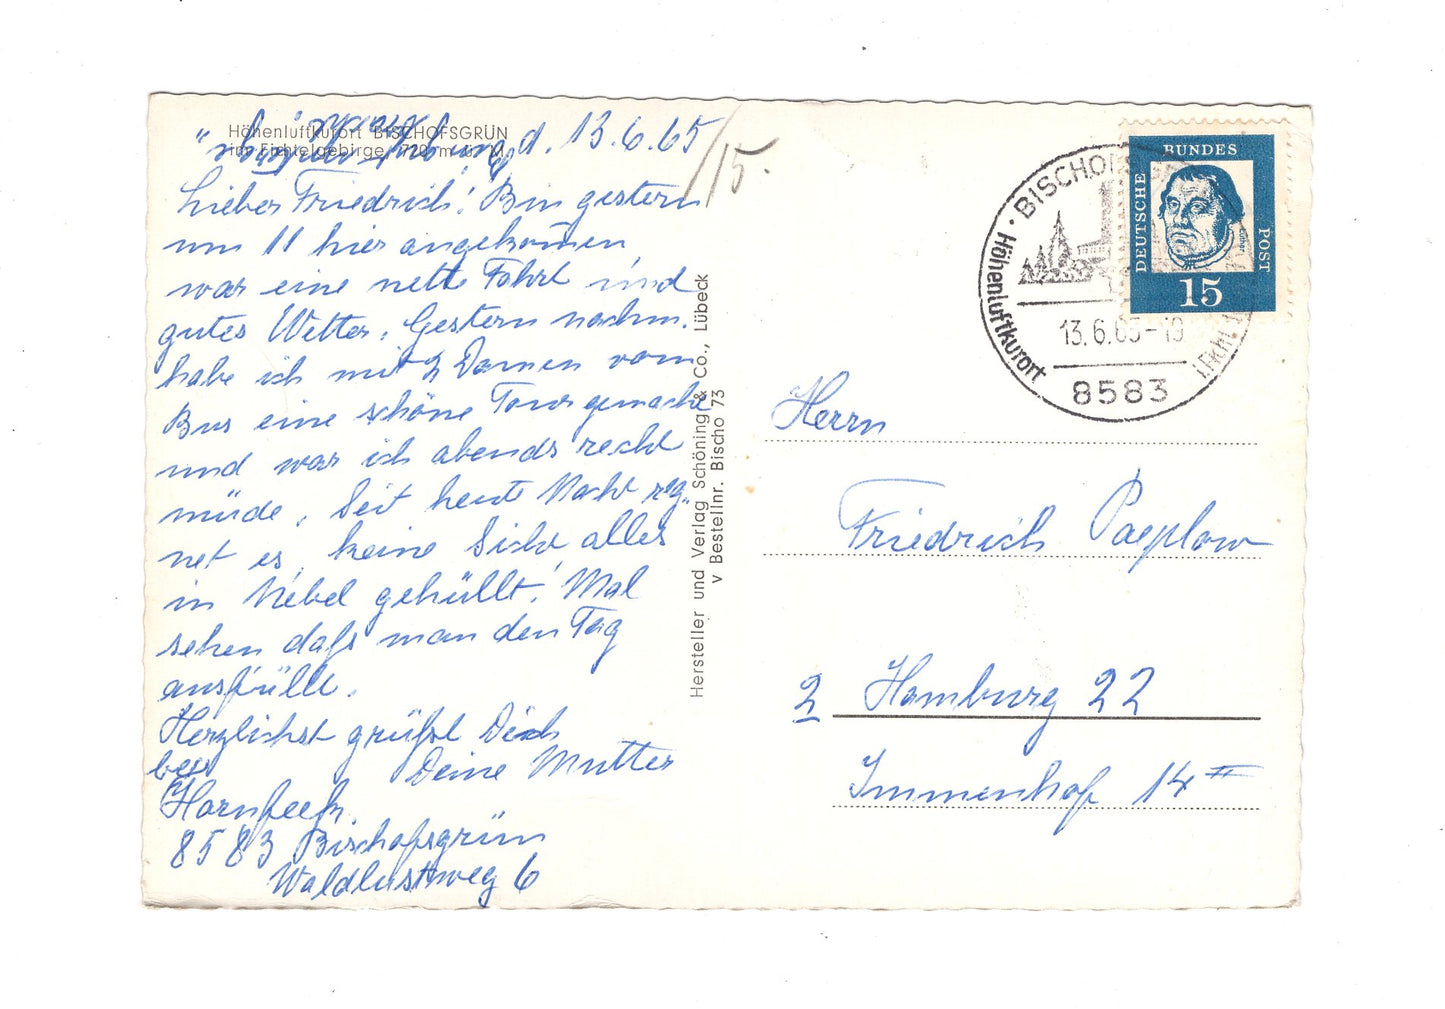 Höhenluftkurort BISCHOFSGRÜN
im Fichtelgebirge, 720 m ü. M.
d. 13.6.65
Lieber Friedrich! Bin gestern
um 11 hier angekommen
war eine nette Fahrt und
gutes Wetter. Gestern nachm.
habe ich mit 2 Damen vom
Bus eine schöne Tour gemacht
und war ich abends recht
müde. Seit heute Nacht reg-
net es, keine Sicht alles
in Nebel gehüllt! Mal
sehen daß man den Tag
ausfüllt.
Herzlichst grüßt Dich
Deine Mutter
bei
Hornfeck
8583 Bischofsgrün
Waldlustweg 6
Hersteller und Verlag Schöning & Co., Lübeck
v Bestellnr. Bischo 73
15.
BISCHOFSGRÜN
Höhenluftkurort
i. Ficht.
13.6.65-19
8583
DEUTSCHE
BUNDES
POST
15
Herrn
Friedrich Paeplow
2 Hamburg 22
Immenhof 14 II